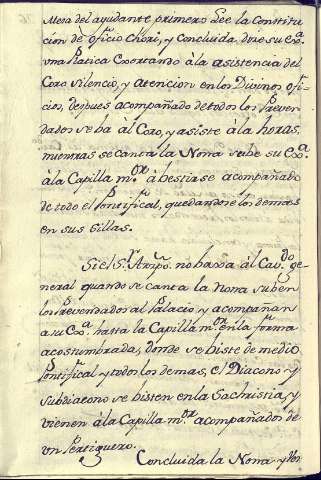 Mesa del ayudante primero Lee la Constitu
cion de officio Chori, y Concluida, dize su Exª.
vna Platica Exortando à la asistencia del
Coro Silencio, y atencion en los Divinos ofi-
cios, despues acompañado de todos los Preven
dados se ba àl Coro, y asiste à la horas,
mientras se canta la Nona sube su Exª.
à la Capilla m.or à bestirse acompañado
de todo el Pontifical, quedandose los demas
en sus Sillas.
Si el S.r Arzpo. no baxa àl Cavdo ge
neral quando se canta la Nona suben
los Prevendados al Palacio, y acompañan
a su Exª. hasta la Capilla m.or en la forma
acostumbrada, donde se biste de medio
Pontifical y todos los demas, el Diacono y
Subdiacono se bisten en la Sachristia, y
vienen à la Capilla m.or acompañados de
vn Pertiguero.
Concluida la Nona, y